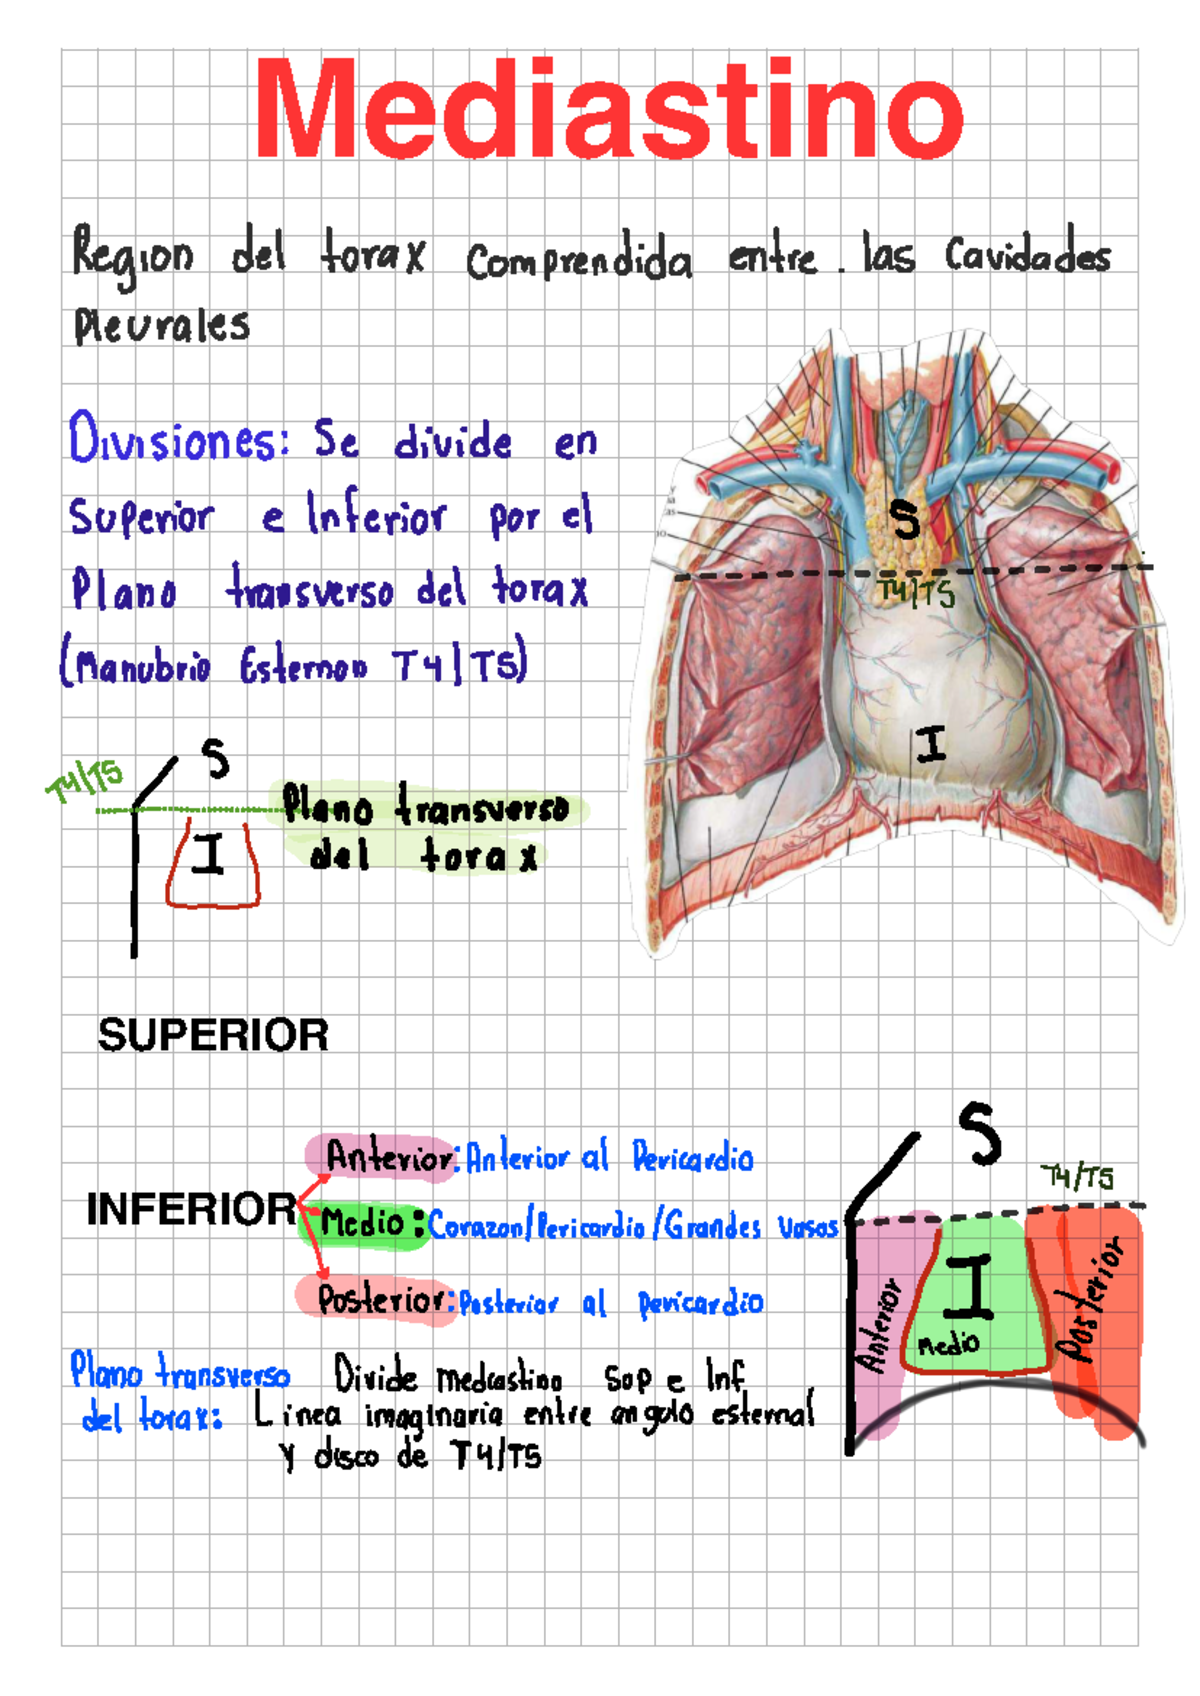 Mediastino
Region del torax comprendida entre las cavidades
pleurales
Divisiones: Se divide en
Superior e Inferior por el
Plano transverso del torax
(Manubrio Esternon T4/T5)
S
T4/T5
I
T4/T5
S
I
Plano transverso
del torax
SUPERIOR
INFERIOR
Anterior: Anterior al Pericardio
Medio: Corazon/Pericardio/Grandes vasos
Posterior: Posterior al pericardio
S
T4/T5
Anterior
I
Medio
Posterior
Plano transverso Divide mediastino Sup e Inf
del torax: Linea imaginaria entre angulo esternal
y disco de T4/T5